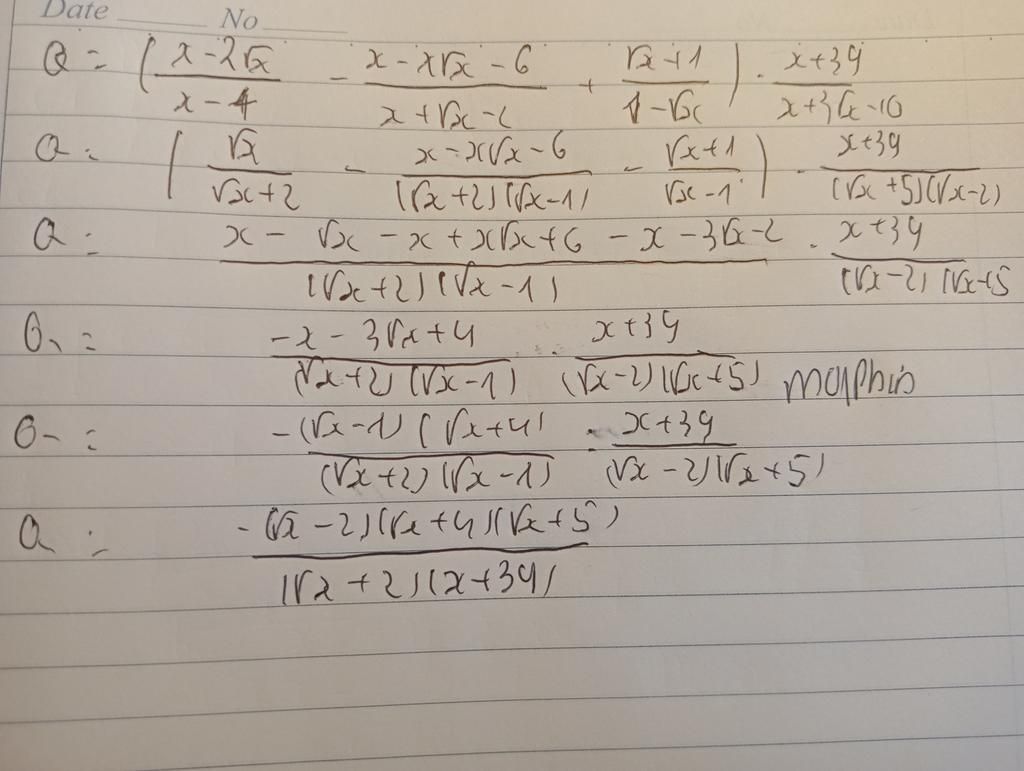 Date No
Q = ( (x - 2√x)/(x - 4) - (x - x√x - 6)/(x + √x - 2) + (√x + 1)/(1 - √x) ) · (x + 39)/(x + 3√x - 10)
Q = ( √x/(√x + 2) - (x - x√x - 6)/((√x + 2)(√x - 1)) - (√x + 1)/(√x - 1) ) · (x + 39)/((√x + 5)(√x - 2))
Q = (x - √x - x + x√x + 6 - x - 3√x - 2)/((√x + 2)(√x - 1)) · (x + 39)/((√x - 2)(√x + 5
Q = (-x - 3√x + 4)/((√x + 2)(√x - 1)) · (x + 39)/((√x - 2)(√x + 5)) morphin
Q = -(√x - 1)(√x + 4)/((√x + 2)(√x - 1)) · (x + 39)/((√x - 2)(√x + 5))
Q = -(√x - 2)(√x + 4)(√x + 5)/((√x + 2)(x + 39))